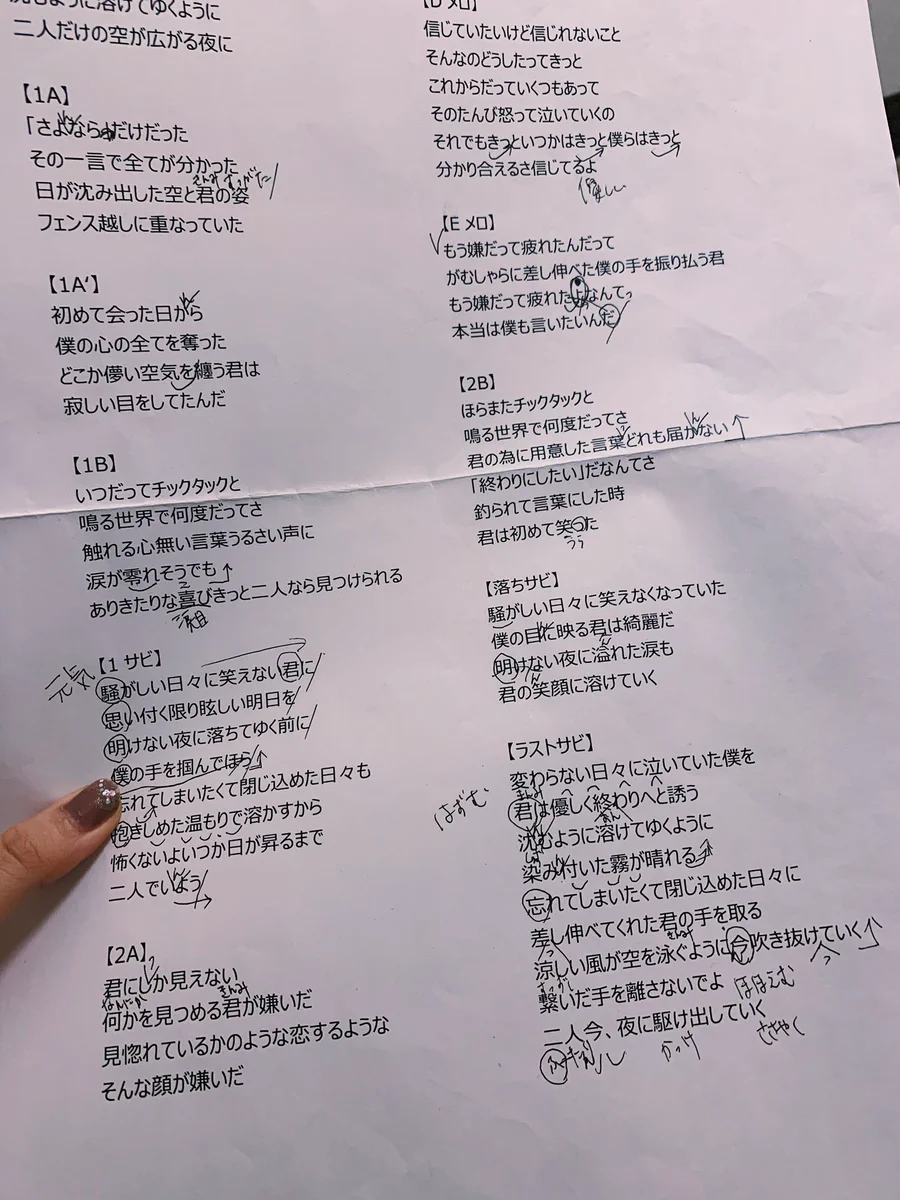 沈むように溶けてゆくように
二人だけの空が広がる夜に
【1A】
「さよなら」だけだった
その一言で全てが分かった
日が沈み出した空と君の姿
フェンス越しに重なっていた
【1A'】
初めて会った日から
僕の心の全てを奪った
どこか儚い空気を纏う君は
寂しい目をしてたんだ
【1B】
いつだってチックタックと
鳴る世界で何度だってさ
触れる心無い言葉うるさい声に
涙が零れそうでも
ありきたりな喜びきっと二人なら見つけられる
元気
【1 サビ】
騒がしい日々に笑えない君に
思い付く限り眩しい明日を
明けない夜に落ちてゆく前に
僕の手を掴んでほら
忘れてしまいたくて閉じ込めた日々も
抱きしめた温もりで溶かすから
怖くないよいつか日が昇るまで
二人でいよう
【2A】
君にしか見えない
何かを見つめる君が嫌いだ
見惚れているかのような恋するような
そんな顔が嫌いだ
【D メロ】
信じていたいけど信じれないこと
そんなのどうしたってきっと
これからだっていくつもあって
そのたんび怒って泣いていくの
それでもきっといつかはきっと僕らはきっと
分かり合えるさ信じてるよ
優しい
【E メロ】
もう嫌だって疲れたんだって
がむしゃらに差し伸べた僕の手を振り払う君
もう嫌だって疲れたよなんて
本当は僕も言いたいんだ
【2B】
ほらまたチックタックと
鳴る世界で何度だってさ
君の為に用意した言葉どれも届かない
「終わりにしたい」だなんてさ
釣られて言葉にした時
君は初めて笑った
【落ちサビ】
騒がしい日々に笑えなくなっていた
僕の目に映る君は綺麗だ
明けない夜に溢れた涙も
君の笑顔に溶けていく
【ラストサビ】
変わらない日々に泣いていた僕を
はずむ
君は優しく終わりへと誘う
沈むように溶けてゆくように
染み付いた霧が晴れる
忘れてしまいたくて閉じ込めた日々に
差し伸べてくれた君の手を取る
涼しい風が空を泳ぐように今吹き抜けていく
繋いだ手を離さないでよ
ほほえむ
二人今、夜に駆け出していく
かっけ
ささやく